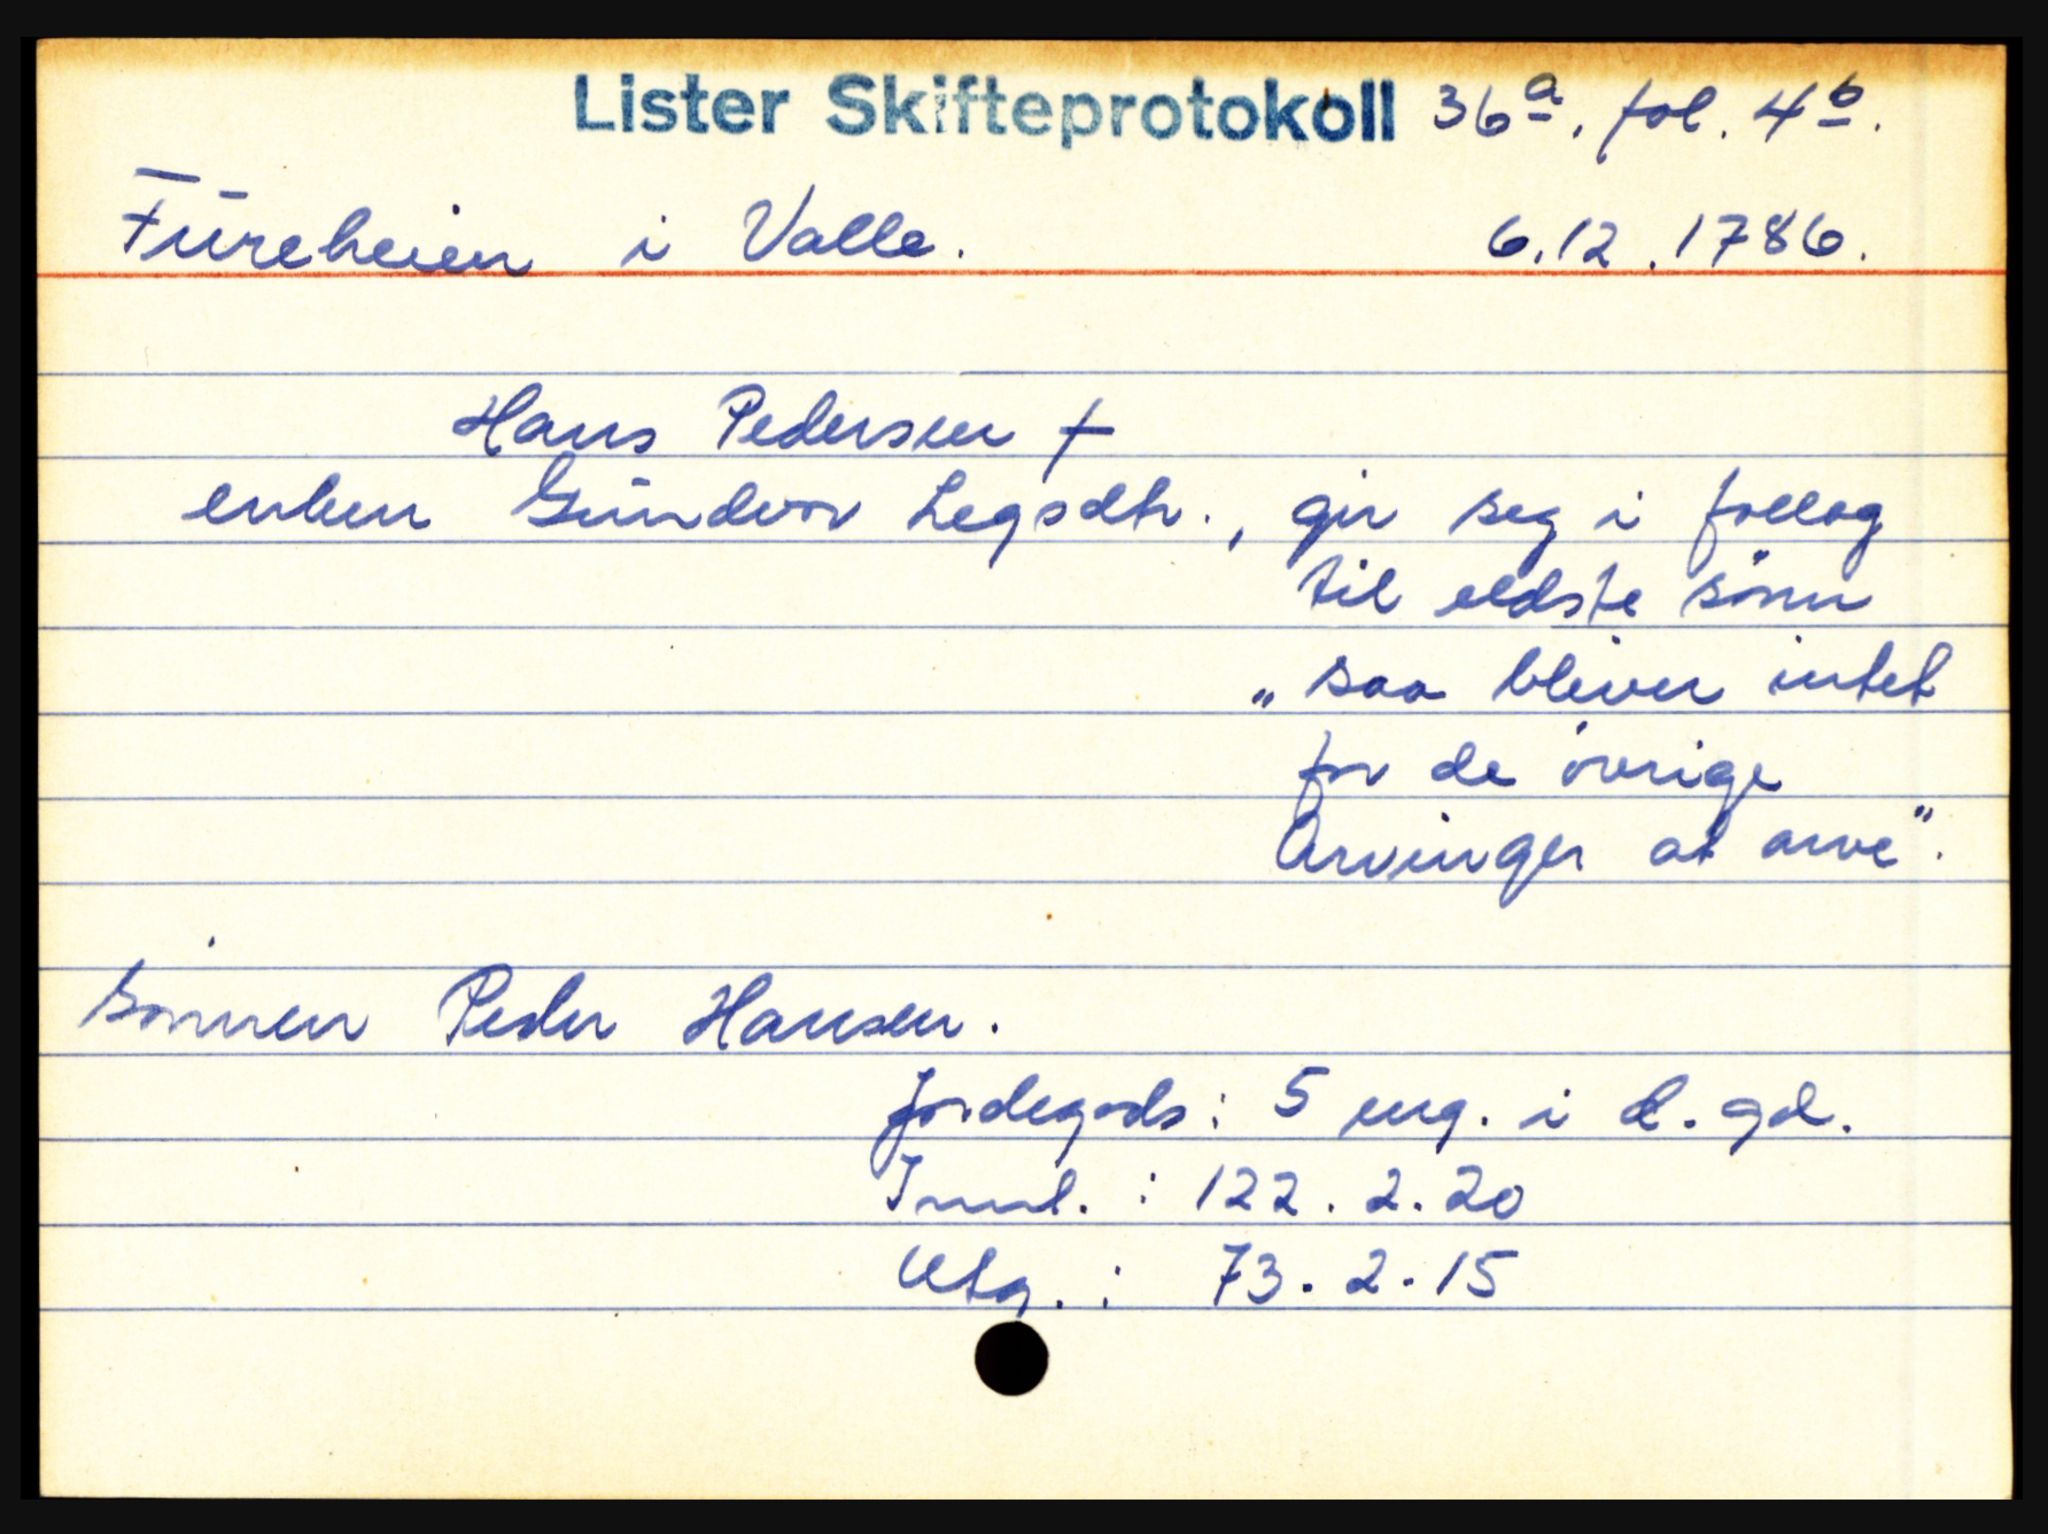 Lister Skifteprotokoll 36a. fol. 4b.
Fūreheien i Valle. 6.12.1786.
Hans Pedersen †
enken Gūndvor Legsdtr., gir seg i follog
til eldste sønn
„saa bliver intet
for de øvrige
Arvinger at arve".
Sønnen Peder Hansen.
Jordegods: 5 eng. i d. gd.
Innt.: 122.2.20
Utg.: 73.2.15